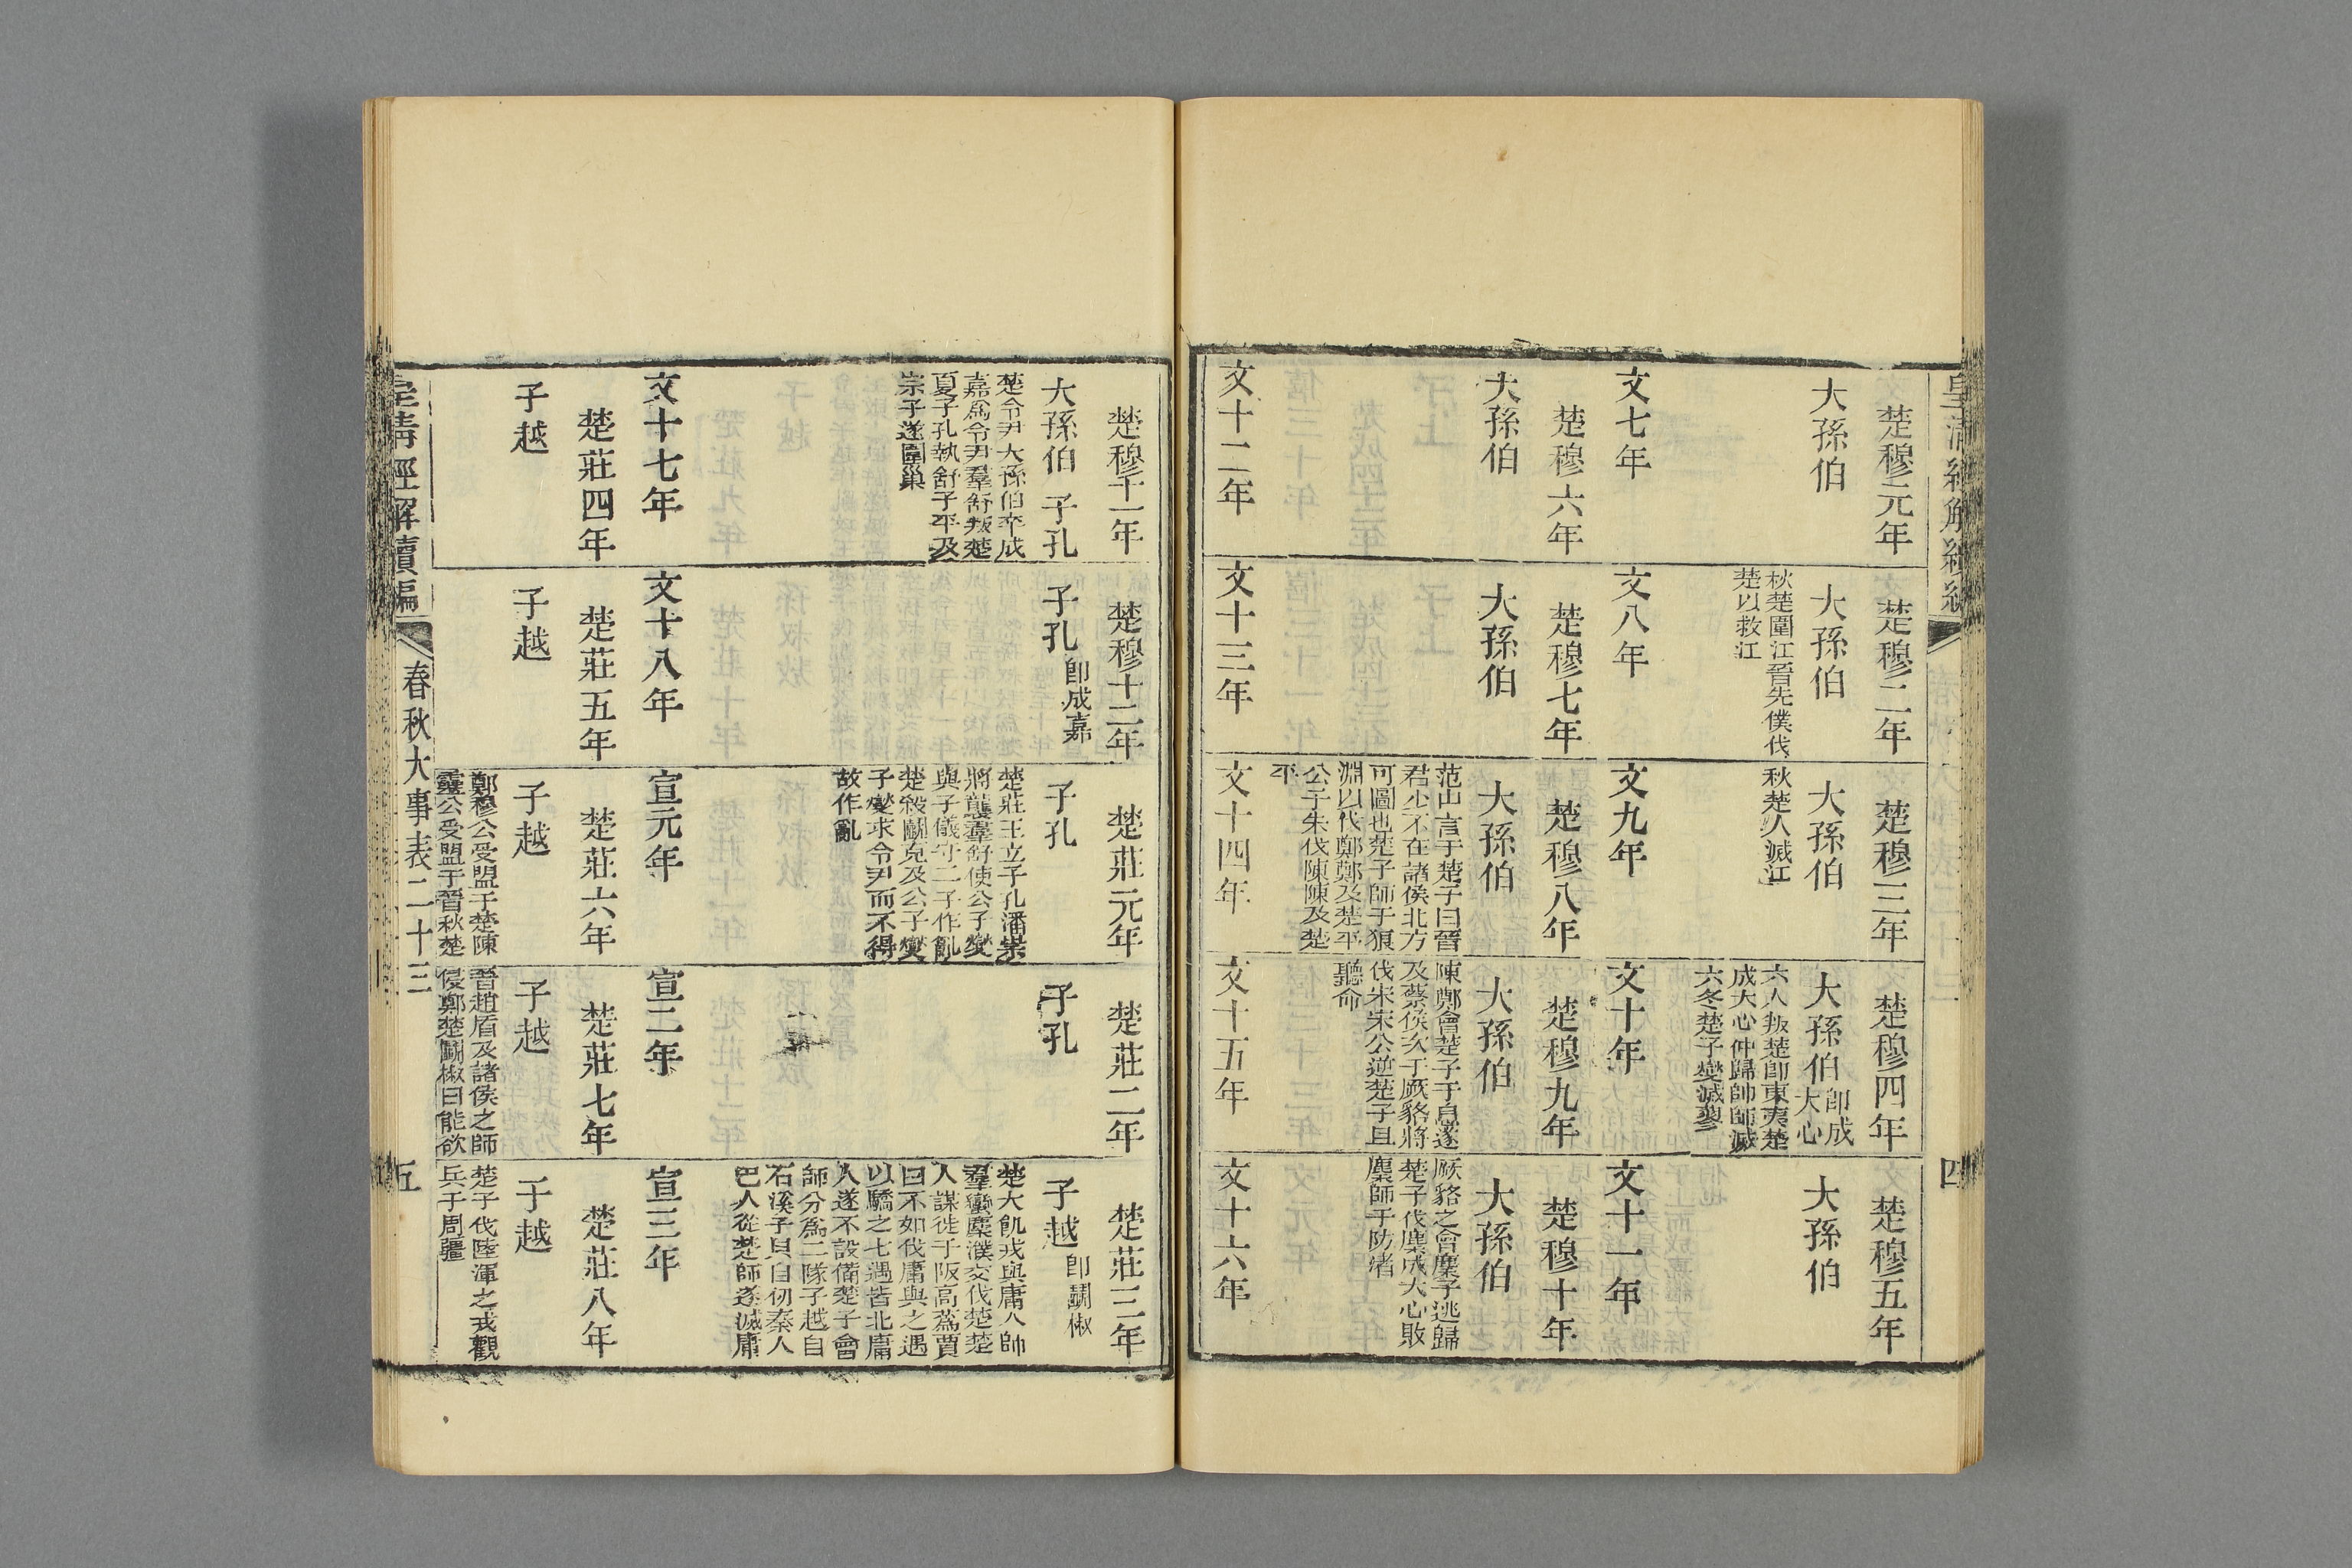 楚穆元年
大孫伯
楚穆二年
大孫伯
秋楚圍江晉先僕伐
楚以救江
楚穆三年
大孫伯
秋楚人滅江
楚穆四年
大孫伯
卽成
大心
六人叛楚卽東夷楚
成大心仲歸帥師滅
六冬楚子燮滅蓼
楚穆五年
大孫伯
文七年
楚穆六年
大孫伯
文八年
楚穆七年
大孫伯
文九年
楚穆八年
大孫伯
范山言于楚子曰晉
君少不在諸侯北方
可圖也楚子師于狼
淵以伐鄭鄭及楚平
公子朱伐陳陳及楚
平
文十年
楚穆九年
大孫伯
陳鄭會楚子于息遂
及蔡侯次于厥貉將
伐宋宋公逆楚子且
聽命
文十一年
楚穆十年
大孫伯
厥貉之會麇子逃歸
楚子伐麇成大心敗
麇師于防渚
文十二年
文十三年
文十四年
文十五年
文十六年
四
楚穆十一年
大孫伯 子孔
楚令尹大孫伯卒成
嘉爲令尹羣舒叛楚
夏子孔執舒子平及
宗子遂圍巢
楚穆十二年
子孔
卽成嘉
楚莊元年
子孔
楚莊王立子孔潘崇
將襲羣舒使公子燮
與子儀守二子作亂
楚殺鬭克及公子燮
子燮求令尹而不得
故作亂
楚莊二年
子孔
楚莊三年
子越
卽鬭椒
楚大飢戎與庸人帥
羣蠻麇濮交伐楚楚
人謀徙于阪高蒍賈
曰不如伐庸與之遇
以驕之七遇皆北庸
人遂不設備楚子會
師分爲二隊子越自
石溪子貝自仞秦人
巴人從楚師遂滅庸
文十七年
楚莊四年
子越
文十八年
楚莊五年
子越
宣元年
楚莊六年
子越
鄭穆公受盟于楚陳
靈公受盟于晉秋楚
宣二年
楚莊七年
子越
晉趙盾及諸侯之師
侵鄭楚鬭椒曰能欲
宣三年
楚莊八年
子越
楚子伐陸渾之戎觀
兵于周疆
皇清經解續編
春秋大事表二十三
五